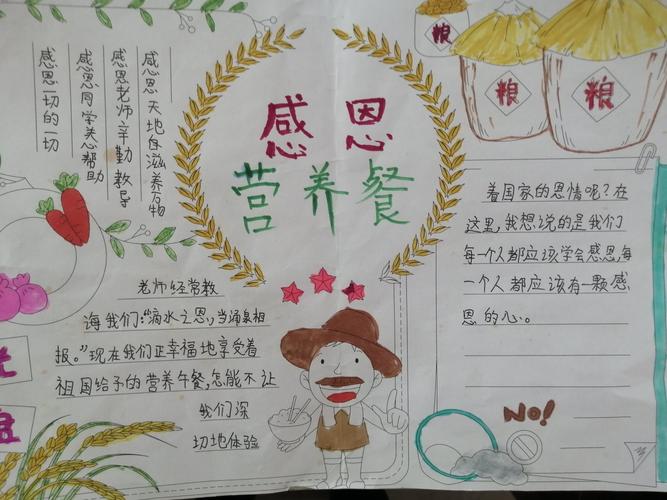 感恩
营养餐
粮
粮
粮
感恩天地自滋养万物
感恩老师辛勤教导
感恩同学关心帮助
感恩一切的一切
老师经常教
海我们:“滴水之恩,当涌泉相
报。”现在我们正幸福地享受着
祖国给予的营养午餐,怎能不让
我们深
切地体验
着国家的恩情呢?在
这里,我想说的是我们
每一个人都应该学会感恩,每
一个人都应该有一颗感
恩的心。
NO!
光
盘